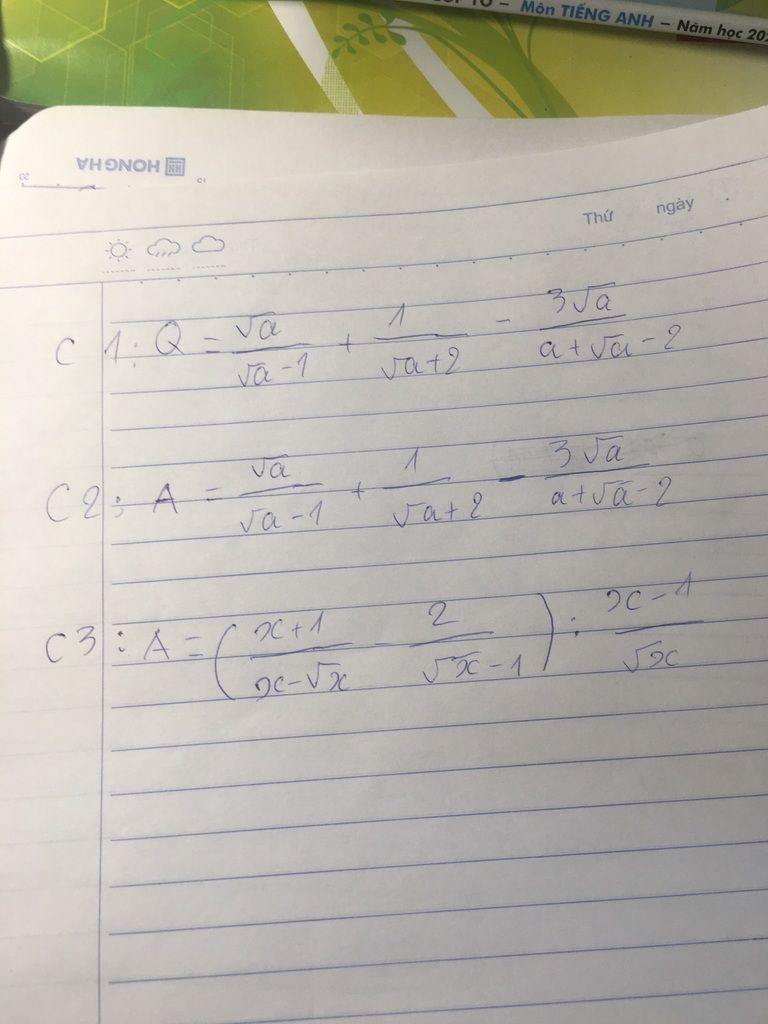 Môn TIẾNG ANH – Năm học 202
HONG HA
Thứ ngày
C1: Q = √a/(√a-1) + 1/(√a+2) - 3√a/(a+√a-2)
C2: A = √a/(√a-1) + 1/(√a+2) - 3√a/(a+√a-2)
C3: A = ((x+1)/(x-√x) - 2/(√x-1)) : (x-1)/√x